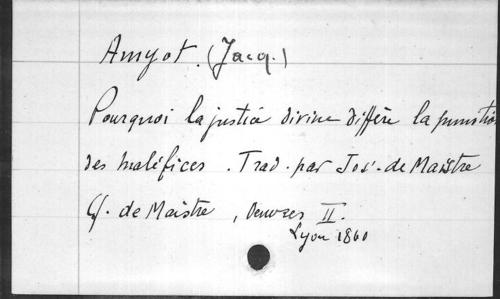 Amyot. (Jacq.)
Pourquoi la justice divine diffère la punition
des maléfices. Trad. par Jos. de Maistre
Cf. de Maistre, Oeuvres II.
Lyon 1860